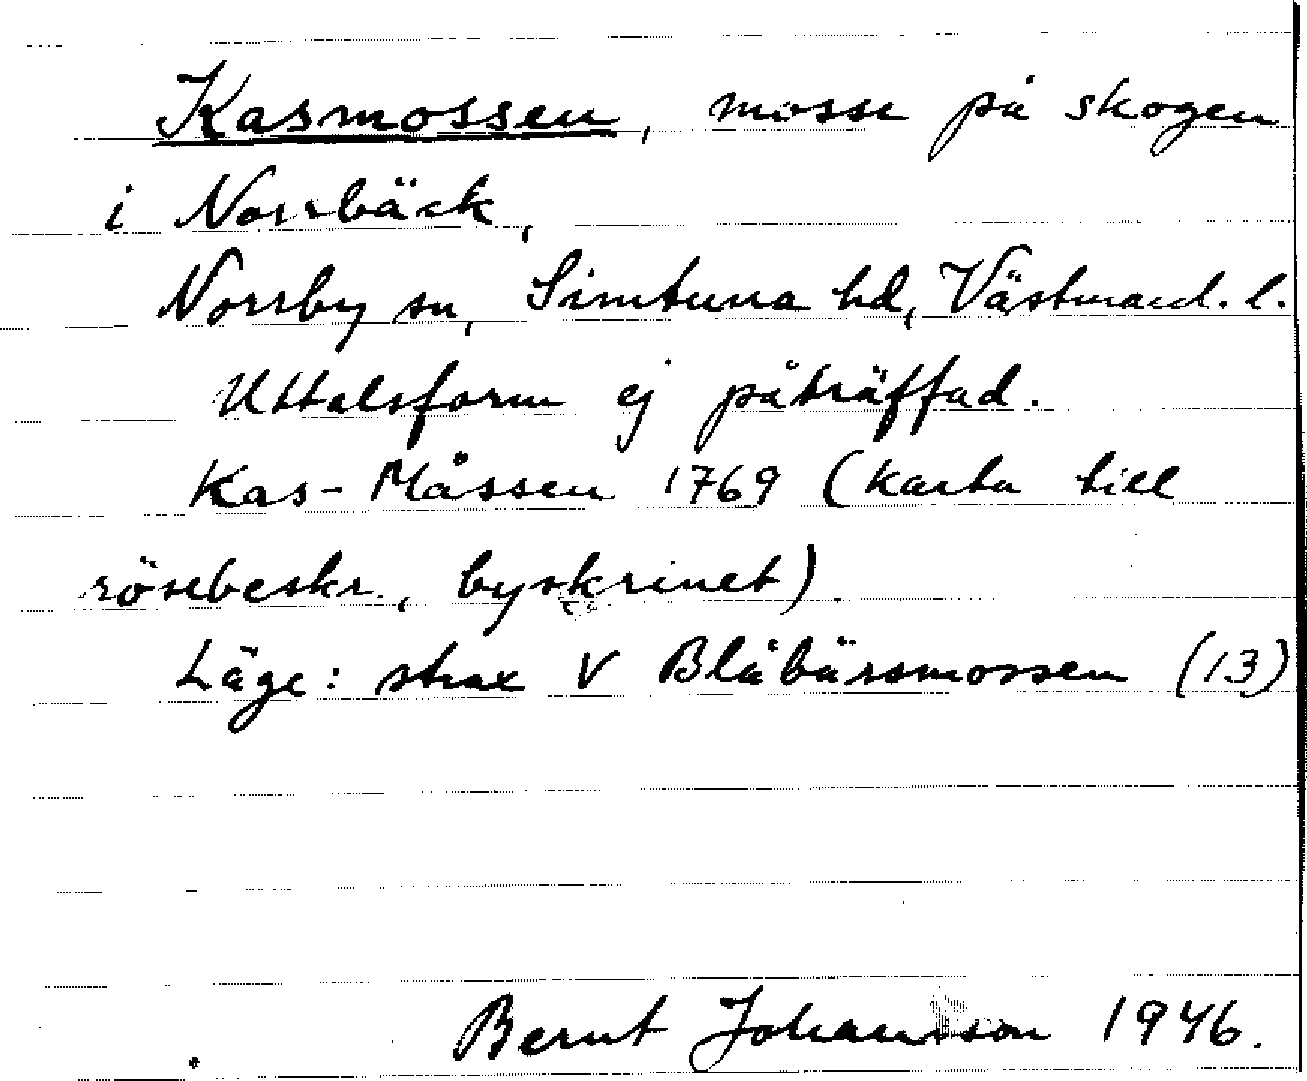 Kasmossen, mosse på skogen
i Norrbäck,
Norrby sn, Simtuna hd, Västmanl. l.
Uttalsform ej påträffad.
Kas-Måssen 1769 (karta till
rösebeskr., byskrinet)
Läge: strax V Blåbärsmossen (13)
Bernt Johansson 1946.